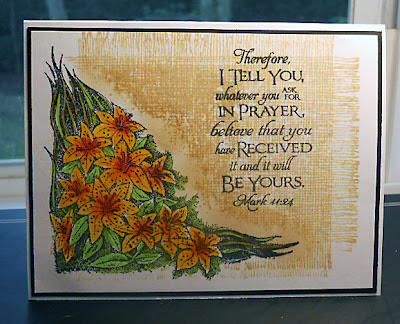 Therefore,
I TELL YOU,
whatever you ASK FOR
IN PRAYER,
believe that you
have RECEIVED
it and it will
BE YOURS.
Mark 11:24